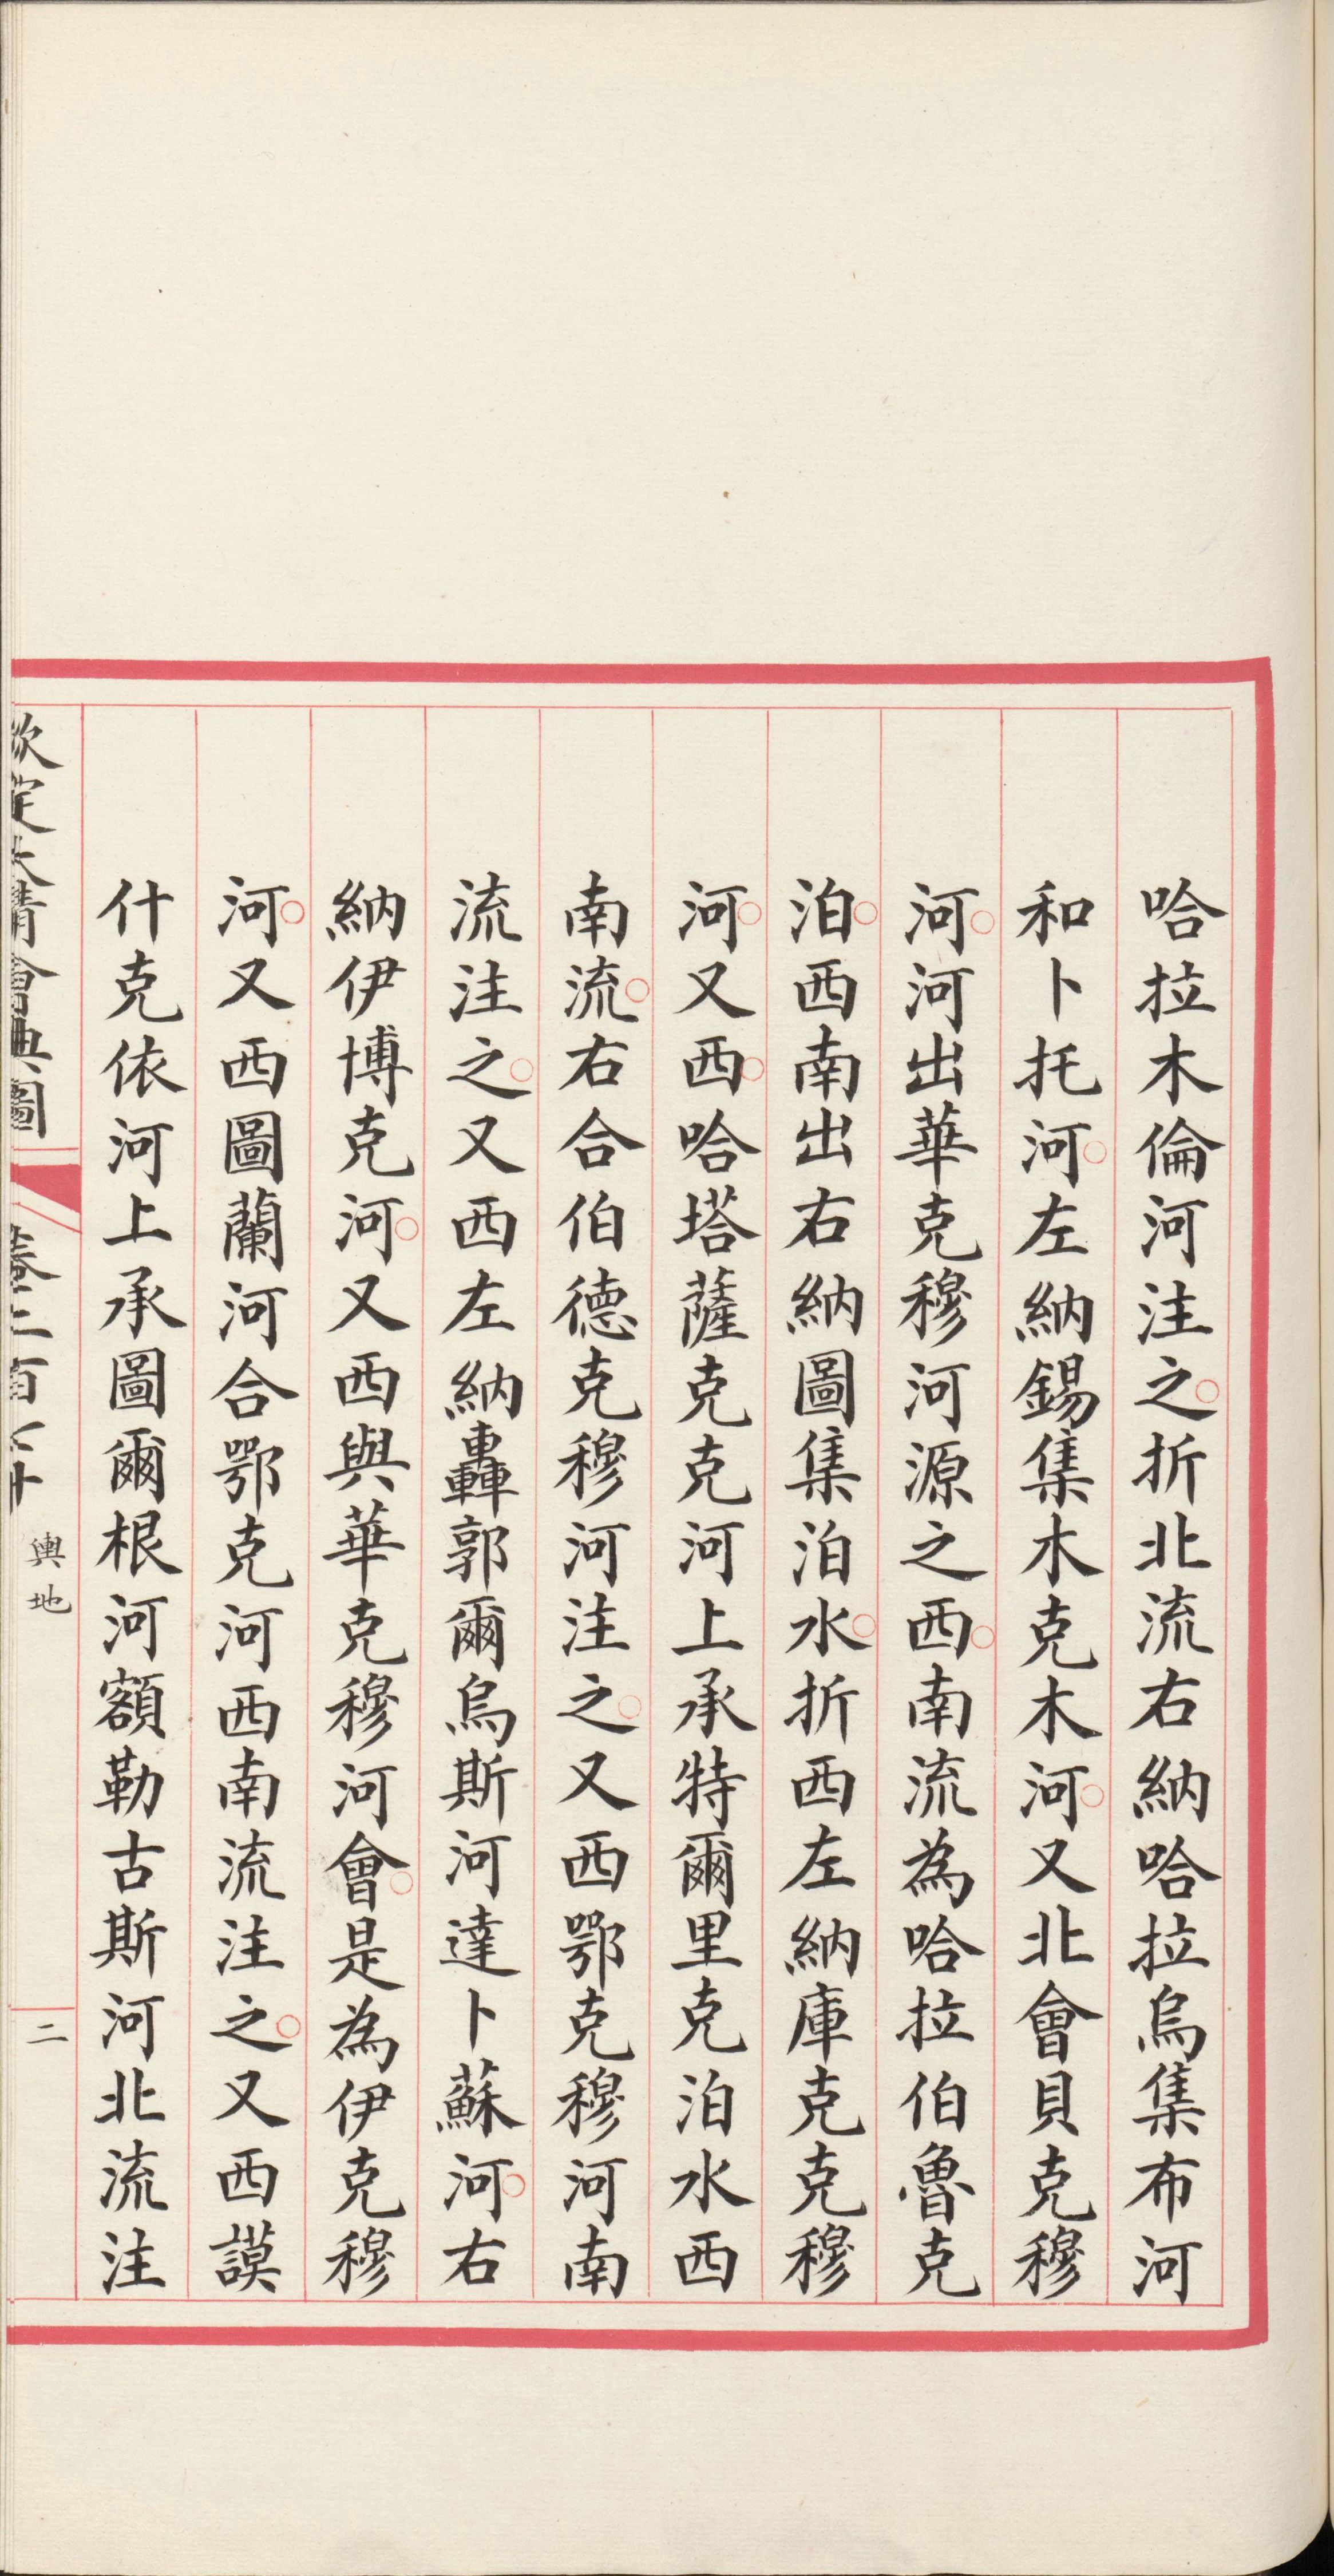 哈拉木倫河注之○折北流右納哈拉烏集布河
和卜托河○左納錫集木克木河○又北會貝克穆
河○河出華克穆河源之西○南流為哈拉伯魯克
泊○西南出右納圖集泊水○折西左納庫克克穆
河○又西○哈塔薩克克河上承特爾里克泊水西
南流○右合伯德克穆河注之○又西鄂克穆河南
流注之○又西左納轟郭爾烏斯河達卜蘇河○右
納伊博克河○又西與華克穆河會○是為伊克穆
河○又西圖蘭河合鄂克河西南流注之○又西謨
什克依河上承圖爾根河額勒古斯河北流注
欽定大清會典圖
輿地
二